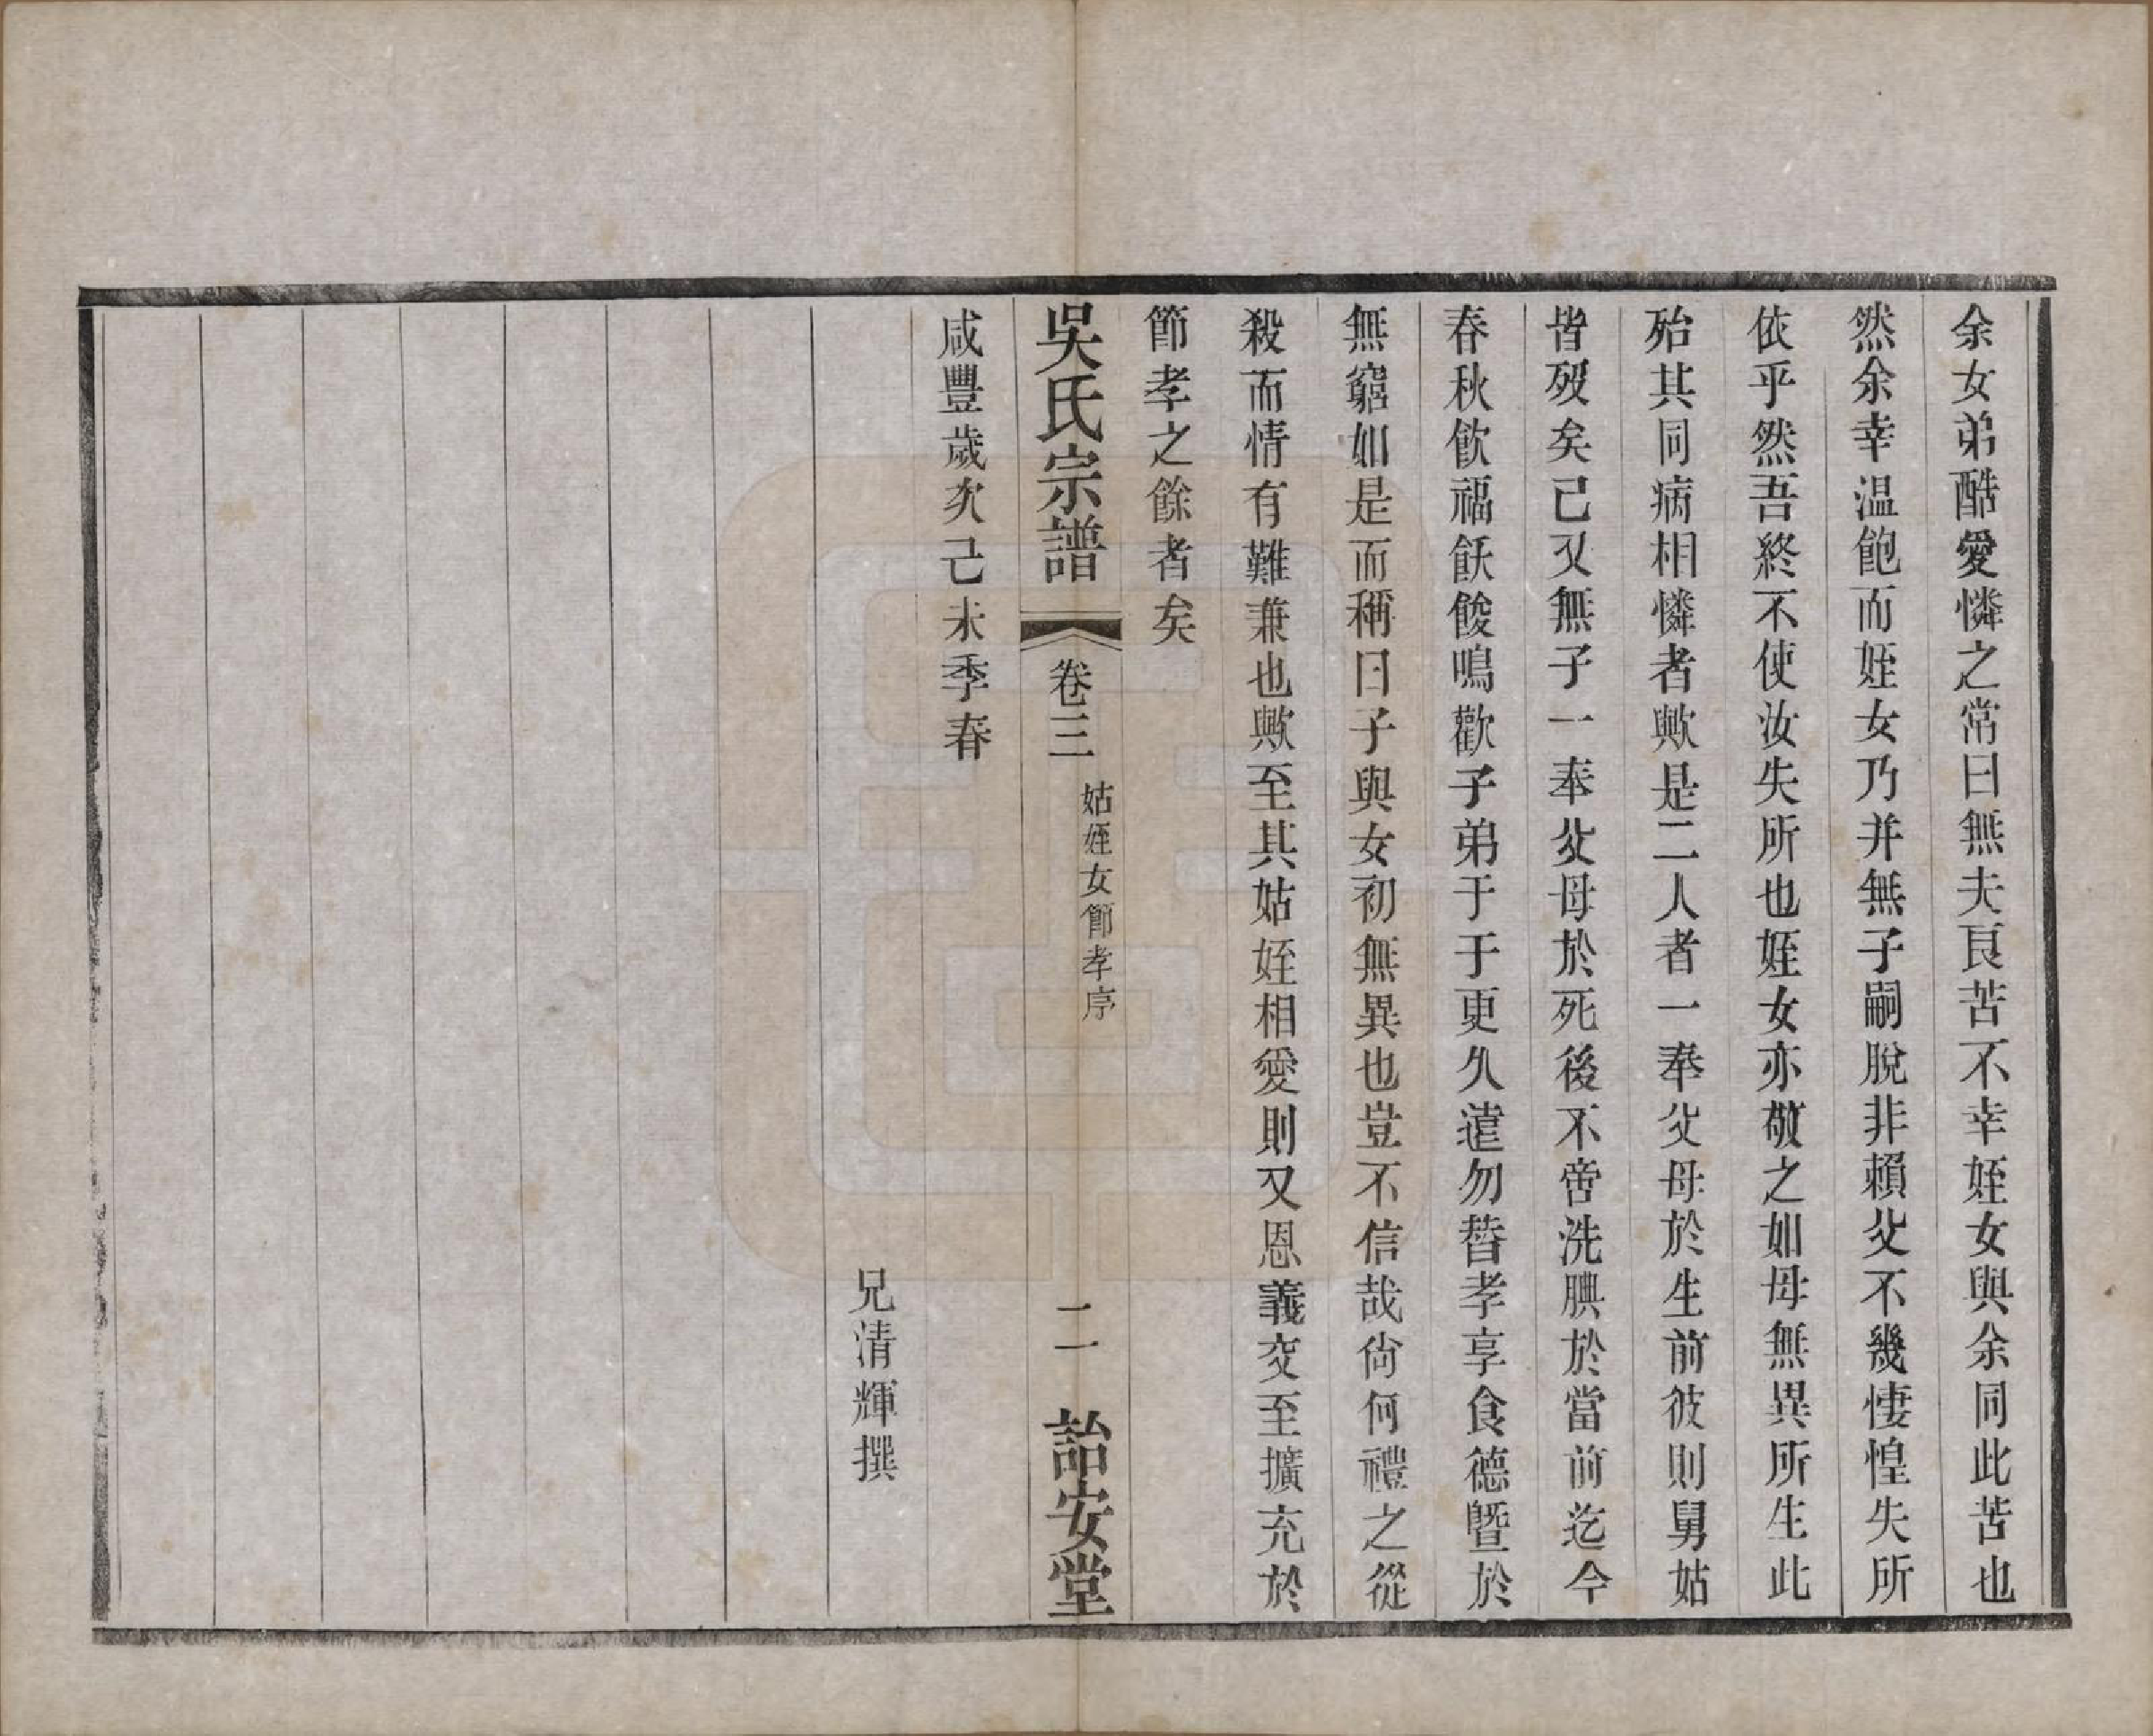 余女弟酷愛憐之常曰無夫良苦不幸姪女與余同此苦也
然余幸温飽而姪女乃并無子嗣脫非賴父不幾悽惶失所
依乎然吾終不使汝失所也姪女亦敬之如母無異所生此
殆其同病相憐者歟是二人者一奉父母於生前彼則舅姑
皆歿矣己又無子一奉父母於死後不啻洗腆於當前迄今
春秋飲福飫餕鳴歡子弟于于更久遠勿替孝享食德曁於
無窮如是而稱曰子與女初無異也豈不信哉尙何禮之從
殺而情有難兼也歟至其姑姪相愛則又恩義交至擴充於
節孝之餘者矣
吳氏宗譜
卷三
姑姪女節孝序
二
詒安堂
咸豐歲次己未季春
兄清輝撰